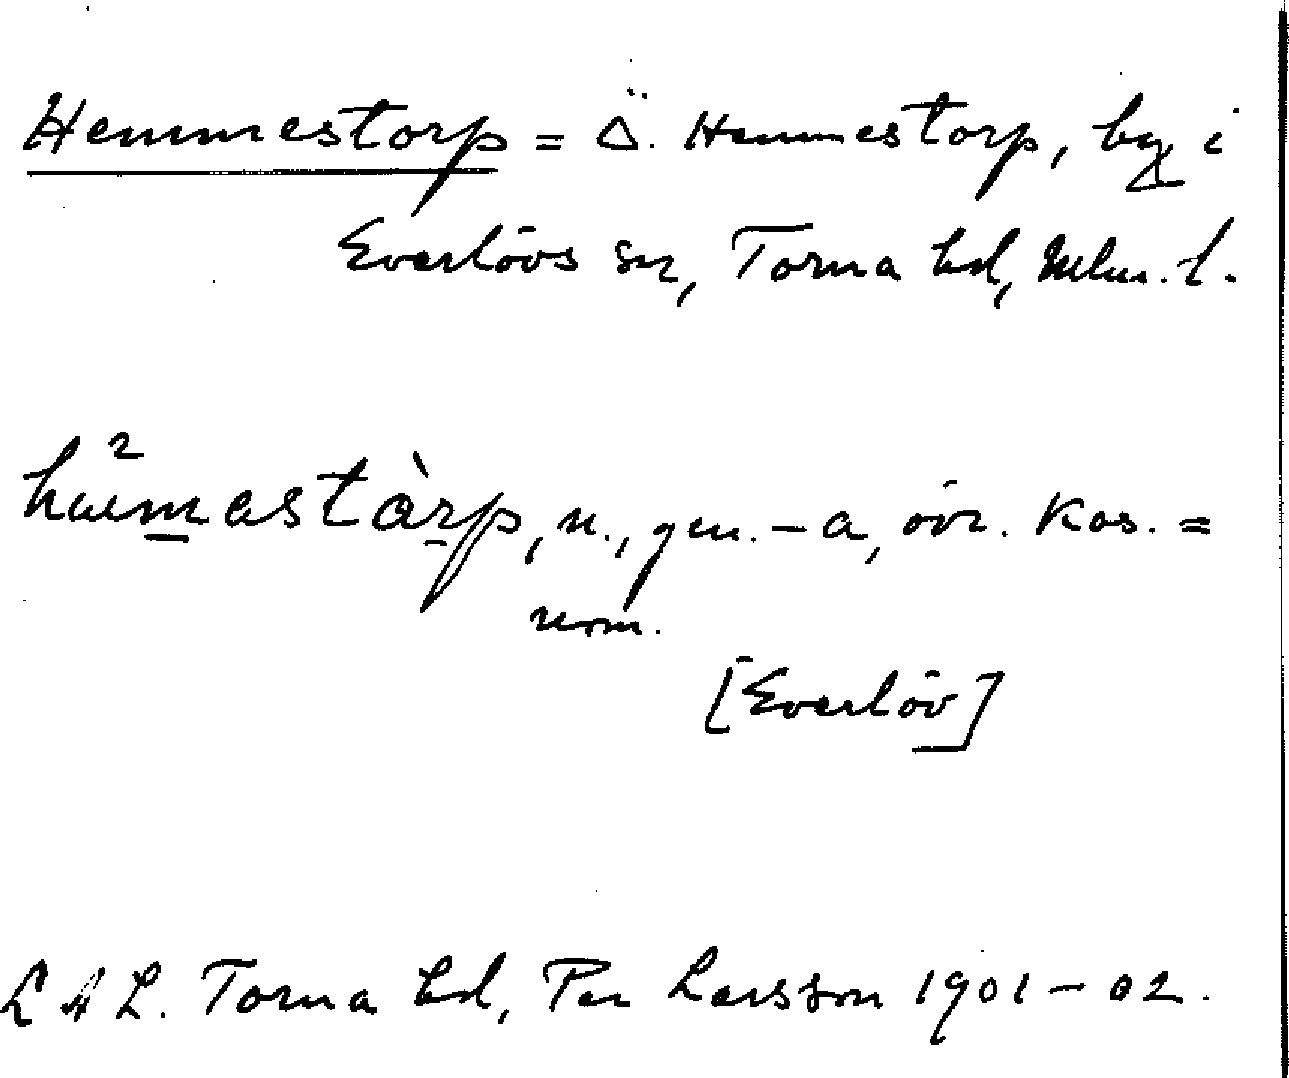 Hemmestorp = Ö. Hemmestorp, by i
Everlövs sn, Torna hd, Mlm. l.
n., gen. – a, övr. Kas. =
nom.
[Everlöv]
L A L. Torna hd, Per Larsson 1901–02.